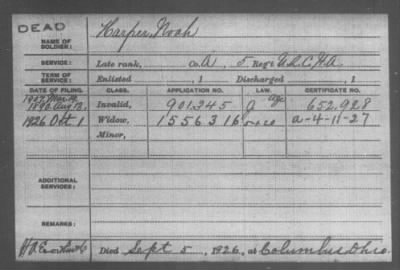 DEAD
NAME OF SOLDIER: Harper, Noah
SERVICE: Late rank, Co. A, 5 Reg't U.S.C.H.A.
TERM OF SERVICE: Enlisted , 1 Discharged , 1
DATE OF FILING. CLASS. APPLICATION NO. LAW. CERTIFICATE NO.
1890 Aug 13, Invalid, 901345 J Age 652,928
1926 Oct 1 Widow, 1556316 a-4-11-27
Minor,
ADDITIONAL SERVICES:
REMARKS:
Died Sept 5, 1926, at Columbus Ohio.